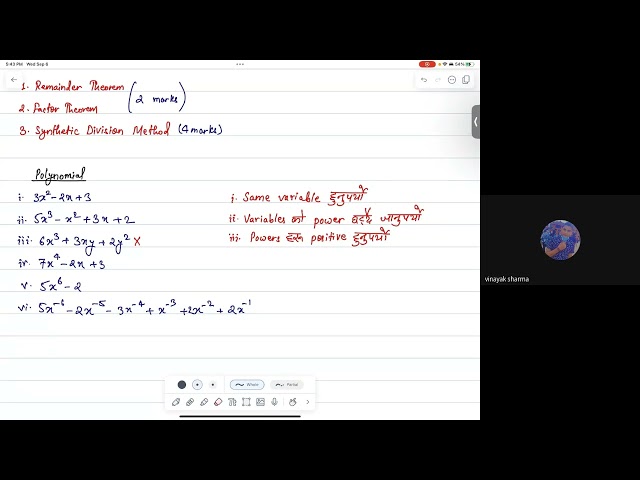 5:43 PM Wed Sep 6
54%
1. Remainder Theorem
(2 marks)
2. Factor Theorem
3. Synthetic Division Method (4 marks)
Polynomial
i. 3x² - 2x + 3
ii. 5x³ - x² + 3x + 2
iii. 6x³ + 3xy + 2y² ×
iv. 7x⁴ - 2x + 3
v. 5x⁶ - 2
vi. 5x⁻⁶ - 2x⁻⁵ - 3x⁻⁴ + x⁻³ + 2x⁻² + 2x⁻¹
i. Same variable हुनुपर्यो
ii. Variables को power घट्दै जानुपर्यो
iii. Powers हरू positive हुनुपर्यो
Whole
Partial
vinayak sharma